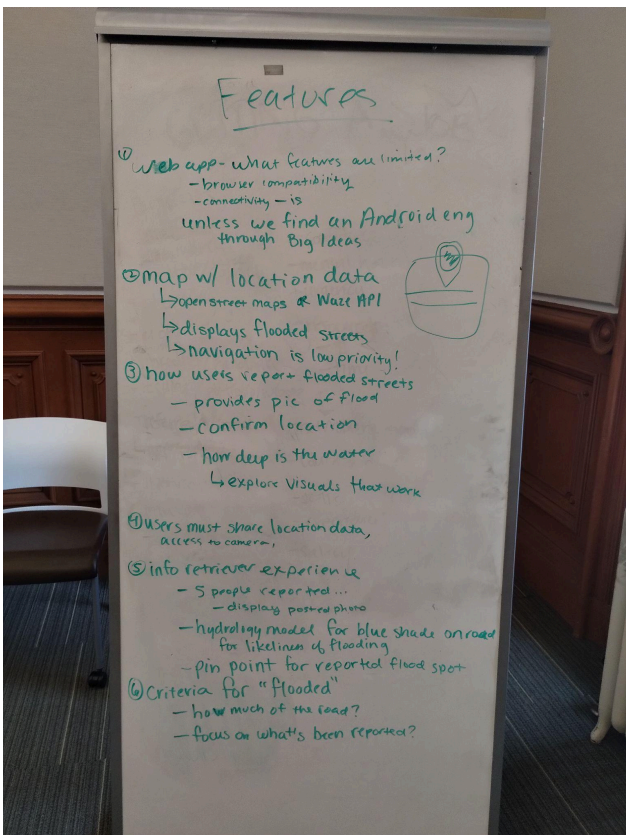 Features
① Web app - what features are limited?
- browser compatibility
- connectivity - is
unless we find an Android eng
through Big Ideas
② map w/ location data
↳ open street maps or Waze API
↳ displays flooded streets
↳ navigation is low priority!
③ how users report flooded streets
- provides pic of flood
- confirm location
- how deep is the water
↳ explore visuals that work
④ users must share location data,
access to camera,
⑤ info retriever experience
- 5 people reported...
- display posted photo
- hydrology model for blue shade on road
for likeliness of flooding
- pin point for reported flood spot
⑥ Criteria for "flooded"
- how much of the road?
- focus on what's been reported?